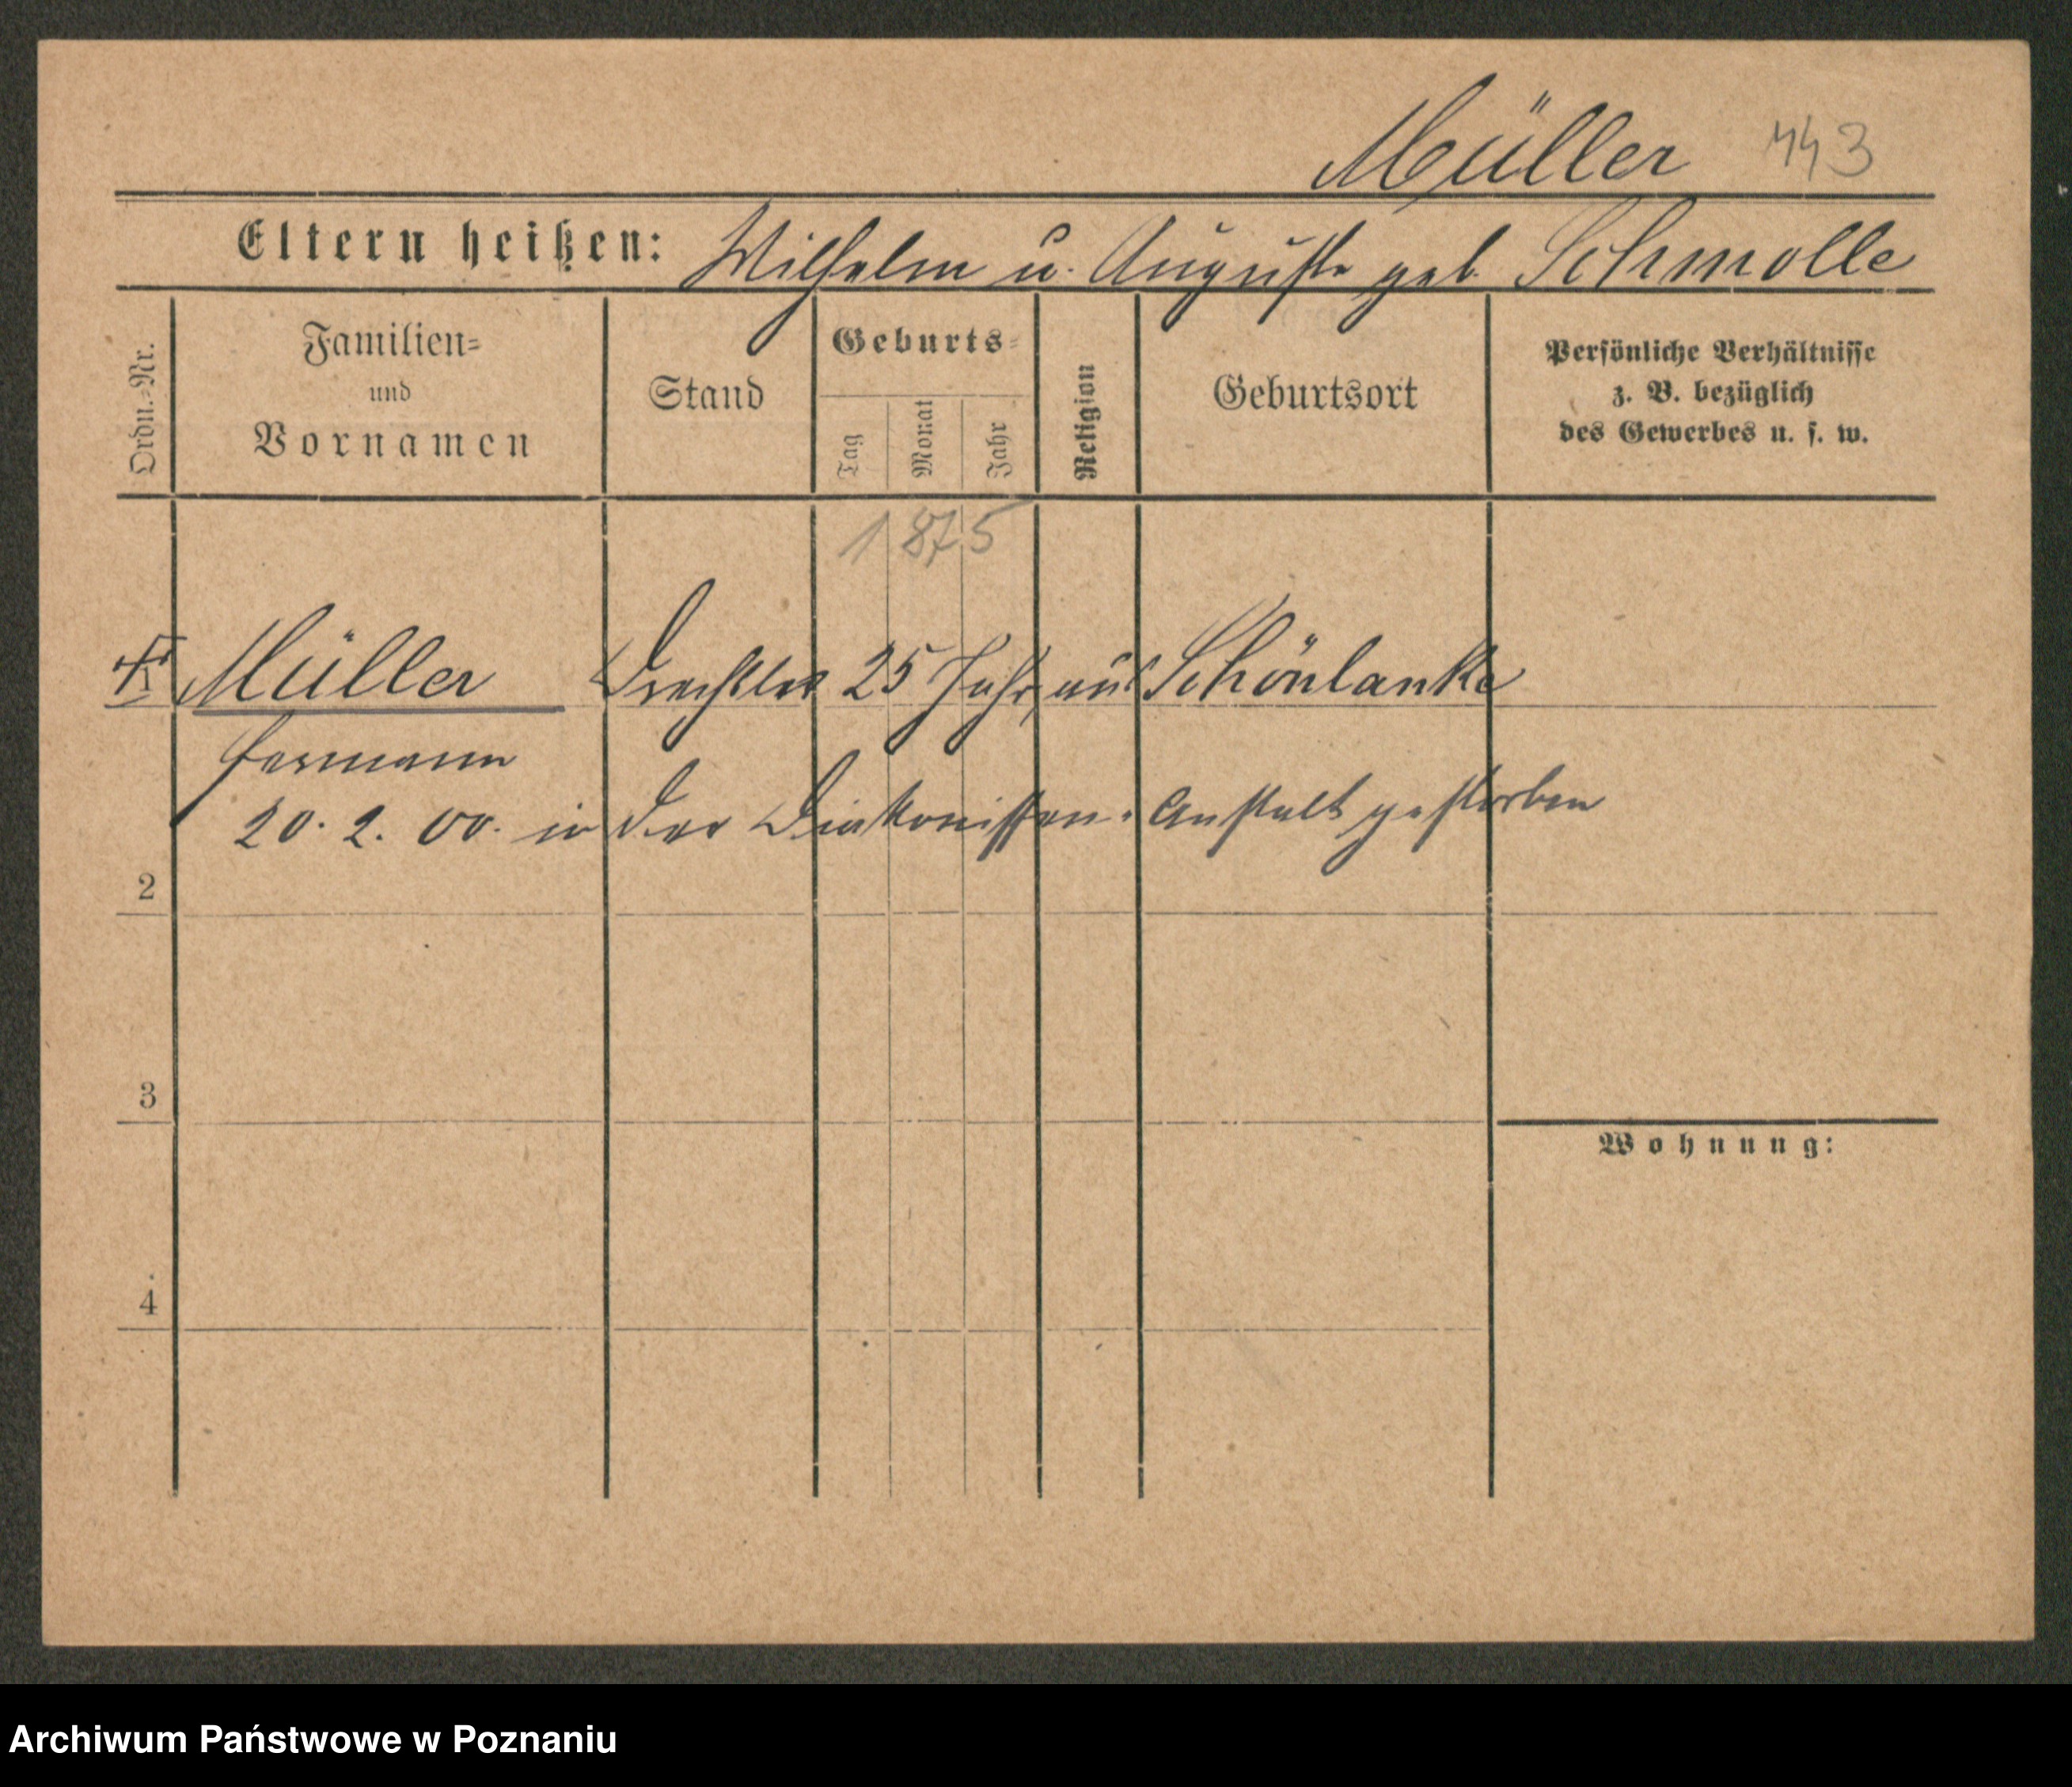 Müller 443
Eltern heißen: Wilhelm u. Auguste geb. Schmolle
Ordn.-Nr.
Familien-
und
Vornamen
Stand
Geburts-
Tag
Monat
Jahr
Religion
Geburtsort
Persönliche Verhältnisse
z. B. bezüglich
des Gewerbes u. s. w.
1875
Müller Drechsler 25 Jahr, aus Schönlanke
Hermann
20. 2. 00. in der Diakonissen-Anstalt gestorben
2
3
Wohnung:
4
Archiwum Państwowe w Poznaniu